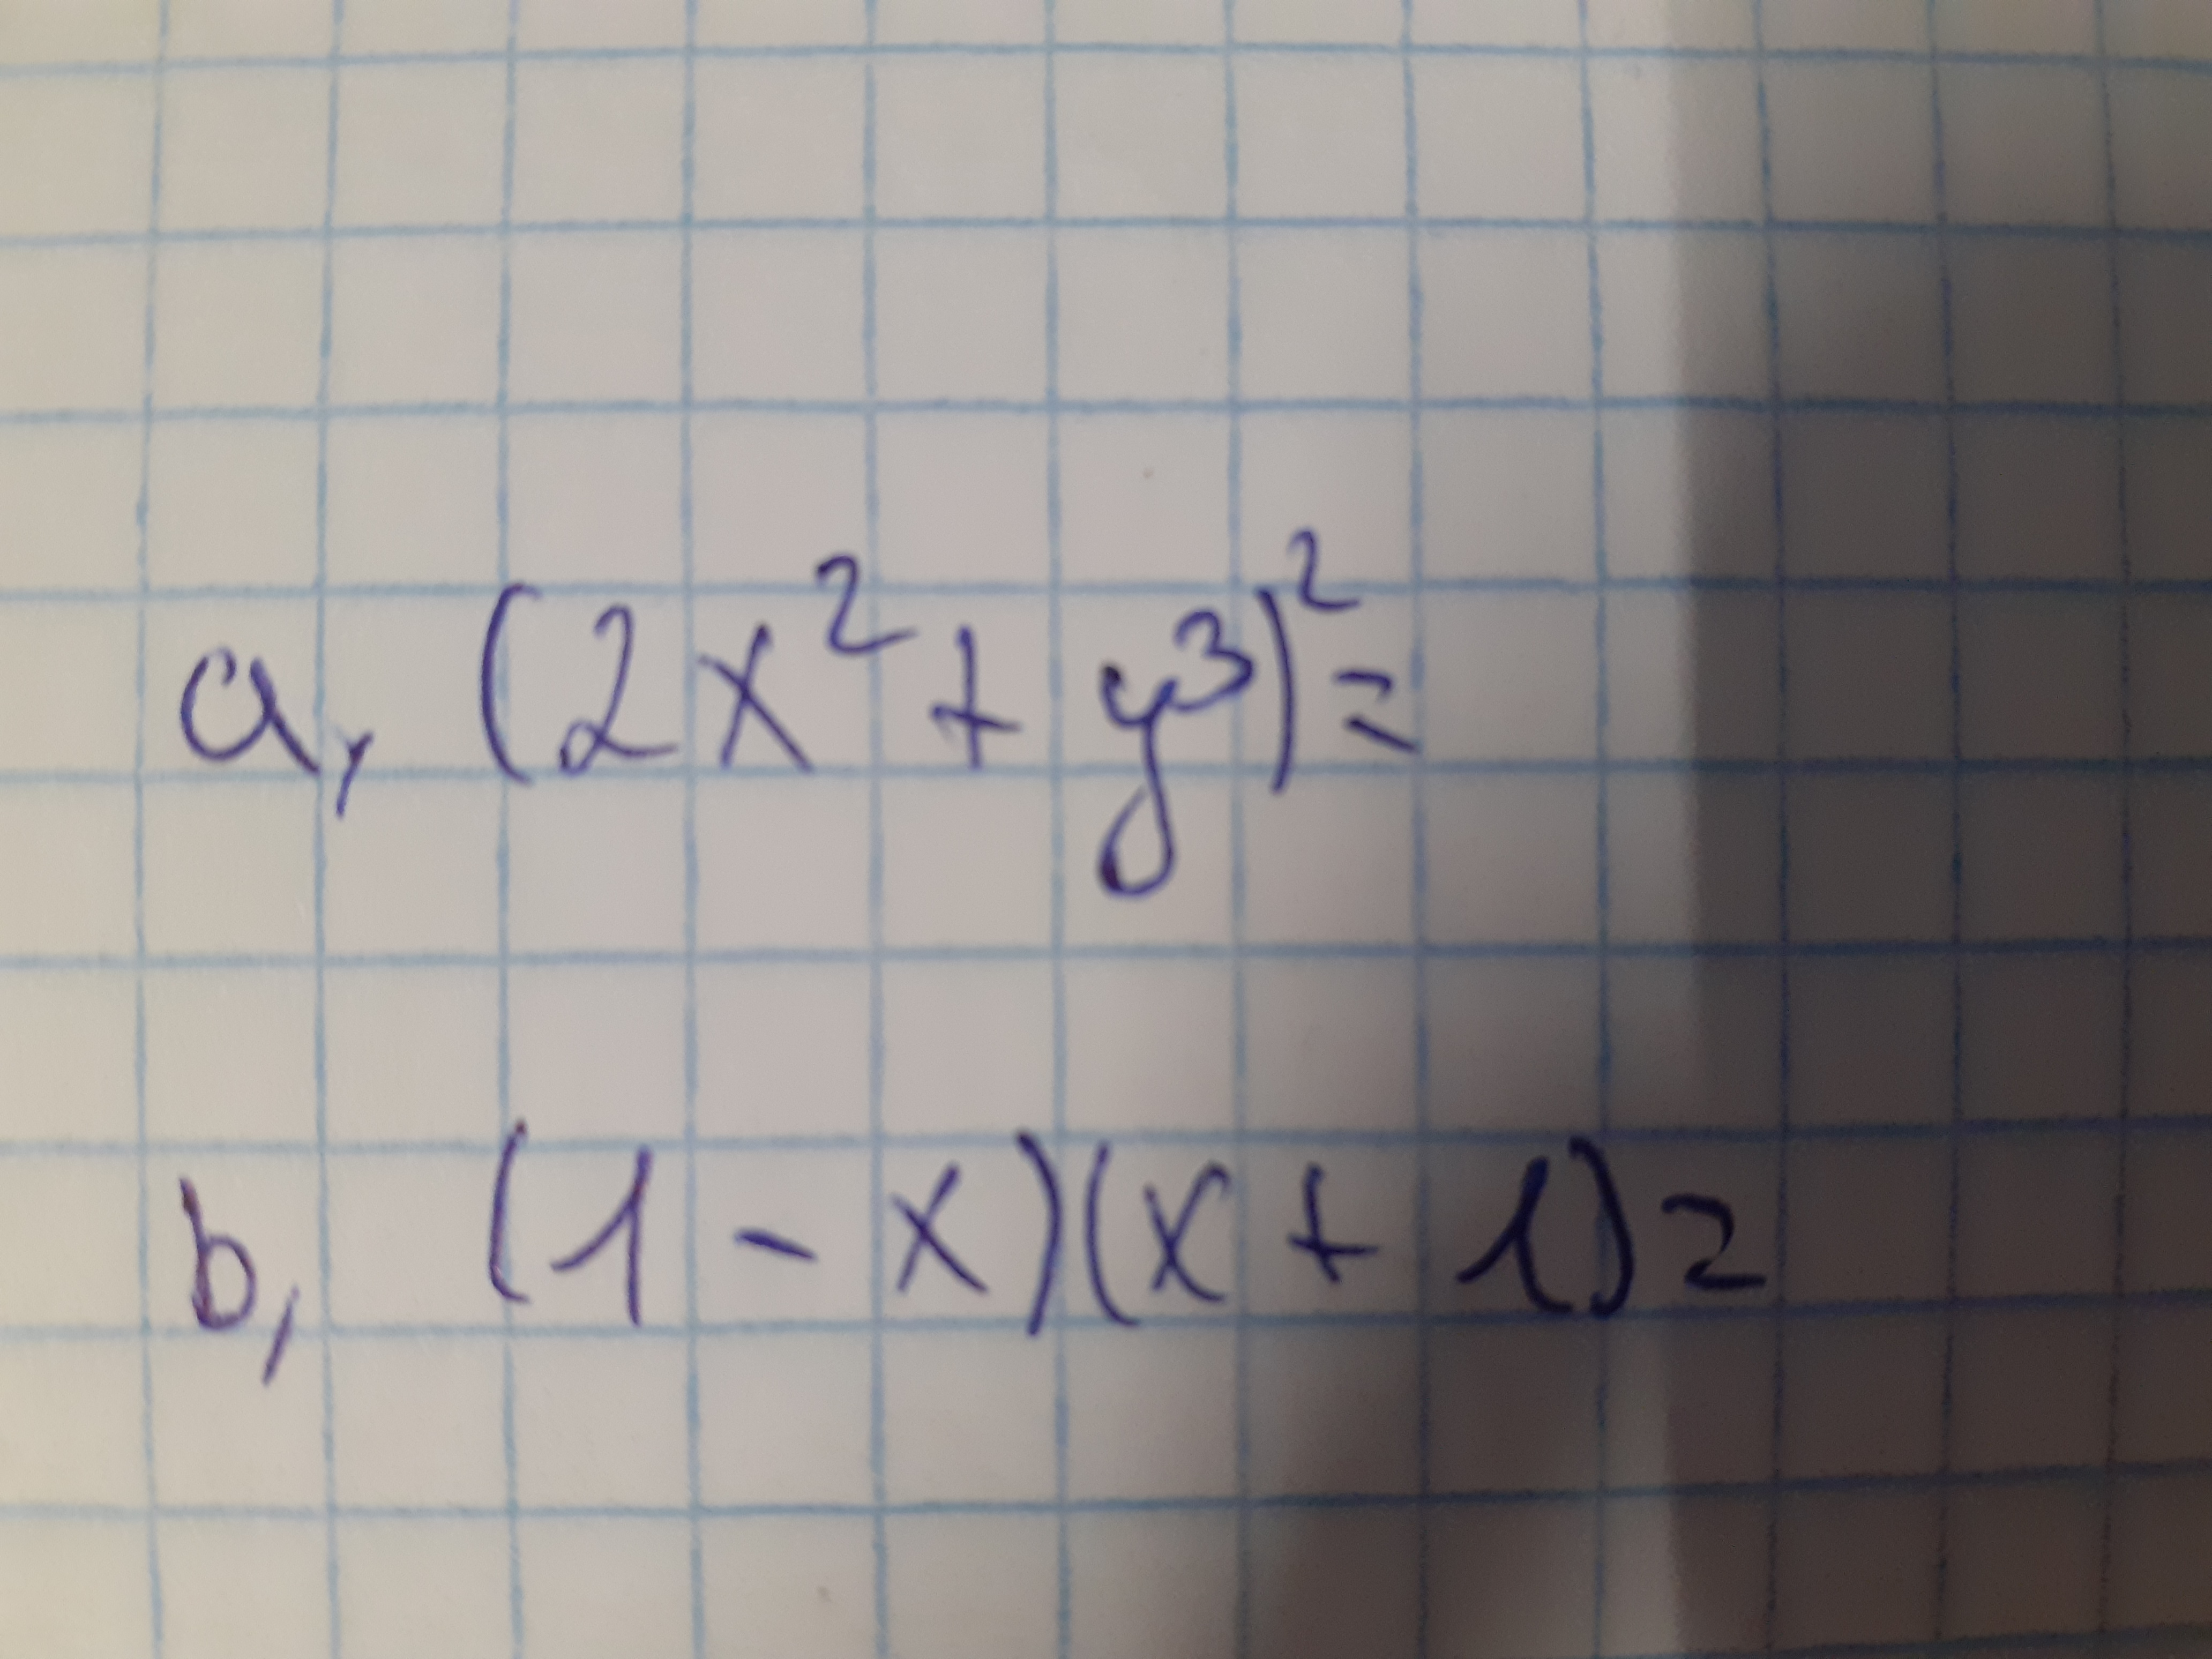 a, (2x²+ y³)²=
b, (1 - x)(x + 1)=